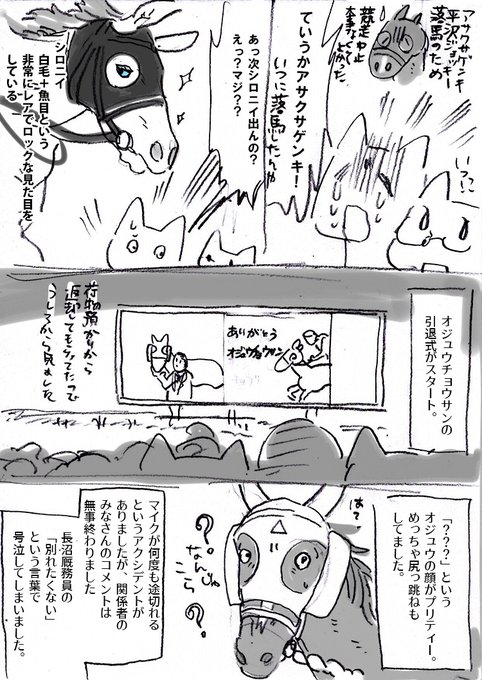 アサクサゲンキ
平沢ジョッキー
落馬のため
競走中止
大事なくて
よかった。
いつ!?
ていうかアサクサゲンキ!
いつに落馬したんか
あっ次シロニイ出んの?
えっ?マジ??
シロニイ
白毛+魚目という
非常にレアでロックな見た目を
している
オジュウチョウサンの
引退式がスタート。
ありがとう
オジュウチョウサン
荷物預かりから
返却してもらってたので
うしろから見ました
「???」という
オジュウの顔がプリティー。
めっちゃ尻っ跳ねも
してました。
は?
?
なんじゃ
こら?
?
マイクが何度も途切れる
というアクシデントが
ありましたが、関係者の
みなさんのコメントは
無事終わりました
長沼厩務員の
「別れたくない」
という言葉で
号泣してしまいました。